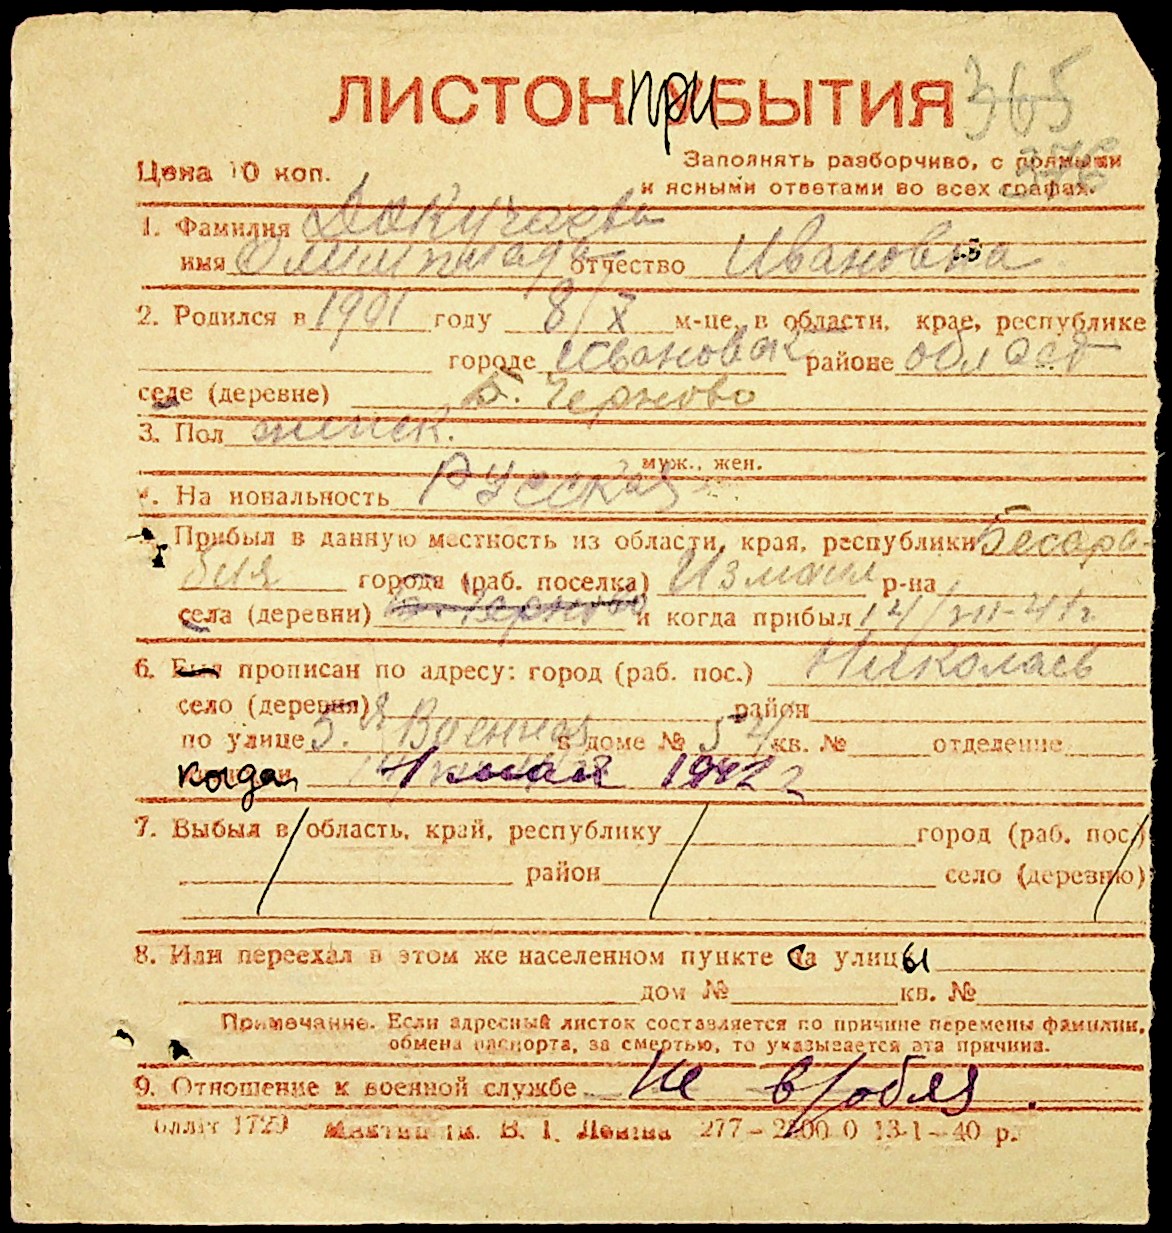 ЛИСТОК при БЫТИЯ 365
Цена 10 коп.
Заполнять разборчиво, с прямыми
и ясными ответами во всех графах.
1. Фамилия Докучаева
имя Олимпиада отчество Ивановна
2. Родился в 1901 году 8/X м-це, в области, крае, республике
городе Ивановск районе област
селе (деревне) Б. Черново
3. Пол женск.
муж., жен.
4. На иональность Русская
Прибыл в данную местность из области, края, республики Бесара-
бия города (раб. поселка) Измаил р-на
села (деревни) Б. Черново и когда прибыл 14/VII-41г.
6. Был прописан по адресу: город (раб. пос.) Николаев
село (деревня) район
по улице 5-я Военная в доме № 54 кв. № отделение
когда 1 мая 1942 г
7. Выбыл в область, край, республику город (раб. пос.)
район село (деревню)
8. Или переехал в этом же населенном пункте с улицы
дом № кв. №
Примечание. Если адресный листок составляется по причине перемены фамилии,
обмена паспорта, за смертью, то указывается эта причина.
9. Отношение к военной службе не в/обяз.
1729 им. В. І. Леніна 277 – 13-1–40 р.